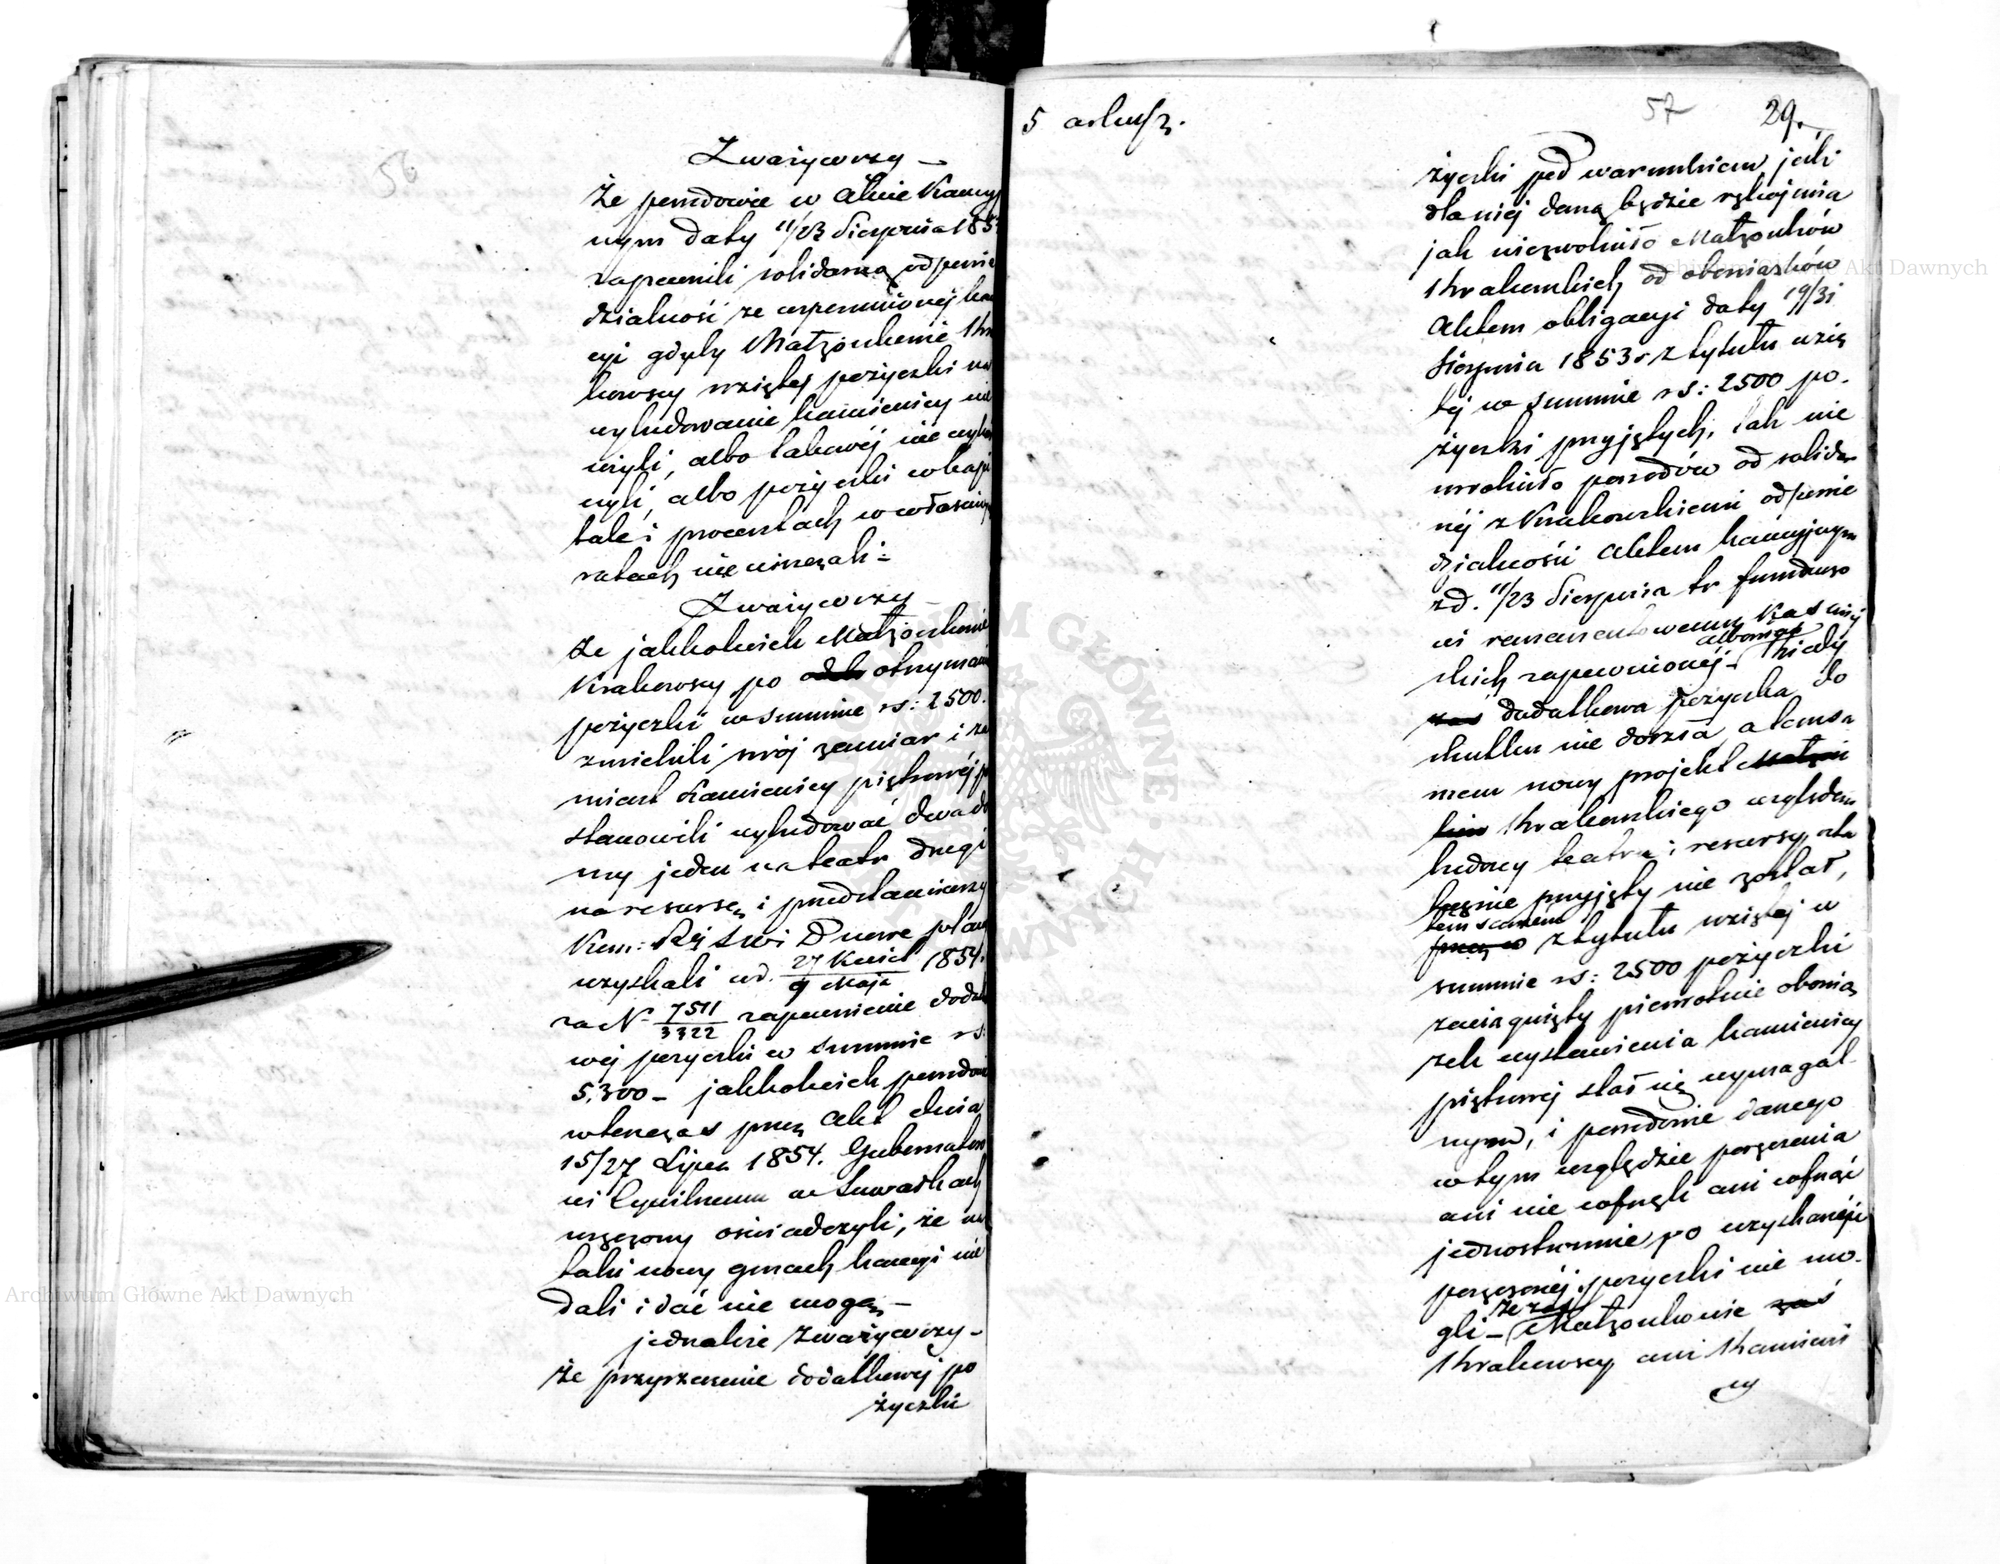 56
Zważywszy –
że pozwdowie w Akcie Kaucyj
nym daty 11/23 Sierpnia 185
zapewnili solidarną odpowie
dzialność ze wspomnionej kau
cyi gdyby Małżonkowie Kra
kowscy wziętej pożyczki na
wybudowanie kamienicy nie
użyli, albo takowéj nie wybu
, albo pożyczki w kapi
tale i procentach w właściwych
ratach nie uiszczali –
Zważywszy –
że jakkolwiek Małżonkowie
Krakowscy po otrzymaniu
pożyczki w summie rs: 2500.
zmienili swój zamiar i za
miast Kamienicy piętrowéj po
stanowili wybudować dwa do
my jeden na teatr drugi
na resursę i przedstawiwszy
Kom: Rz: S. W. i D. nowe plany
uzyskali w d. 27 Kwiet / 9 Maja 1854.
za N. 7511/3322 zapewnienie dodatko
wéj pożyczki w summie rs:
5,300 – jakkolwiek pozwdowie
wtenczas przez Akt dnia
15/27 Lipca 1854. Gubernatoro
wi Cywilnemu w Suwałkach
wręczony oświadczyli, że na
taki nowy gmach kaucyi nie
dali i dać nie mogą –
jednakże Zważywszy –
że przyrzeczenie dodatkowéj po
życzki
5 arkusz.
57
29.
życzki pod warunkiem jeśli
dla niéj daną będzie rękojmia
jak nie zwolniło Małżonków
Krakowskich od obowiązków
Aktem obligacyi daty 19/31
Sierpnia 1853 r z tytułu wzię
téj w summie rs: 2500 po-
życzki przyjętych, tak nie
uwolniło pozwdów od solidar
néj z Krakowskiemi odpowie
dzialności Aktem kaucyjnym
z d. 11/23 Sierpnia tr funduszo
wi remanentowemu Kas miej
skich zapewnionéj – albowiem kiedy
zaś dodatkowa pożyczka do
skutku nie doszła a temsa
mem nowy projekt Małżon
ków Krakowskiego względem
budowy teatru i resursy osta
tecznie przyjęty nie został,
tem samem z tytułu wziętej w
summie rs: 2500 pożyczki
zaciągnięty pierwotnie obowią
zek wystawienia kamienicy
piętrowej stał się wymagal-
nym, i pozwdowie danego
w tym względzie poręczenia
ani nie cofnęli ani cofnąć
jednostronnie po uzyskanéj
poręczonéj pożyczki nie mo-
gli – że zaś Małżonkowie zaś
Krakowscy ani Kamieni
cy
Archiwum Główne Akt Dawnych
Archiwum Główne Akt Dawnych
ARCHIWUM GŁÓWNE AKT DAWNYCH